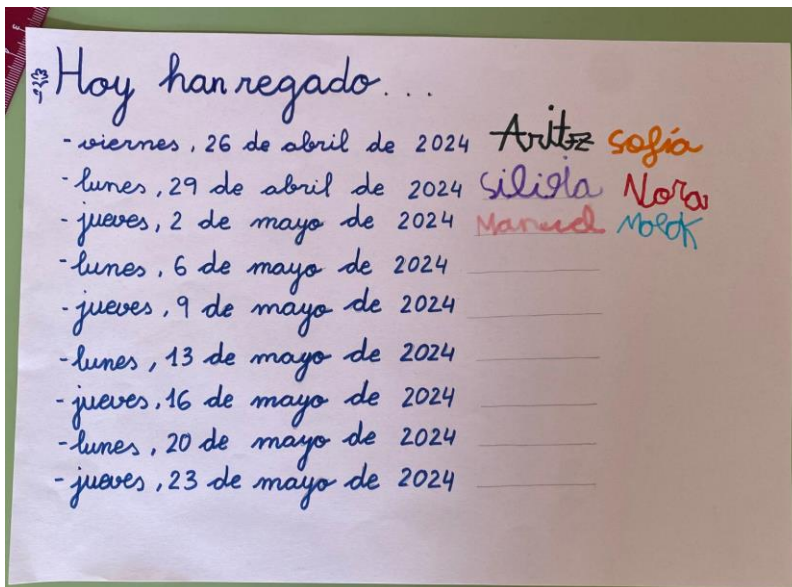 Hoy han regado...
- viernes, 26 de abril de 2024 Aritz Sofía
- lunes, 29 de abril de 2024 Nora
- jueves, 2 de mayo de 2024 Manuel
- lunes, 6 de mayo de 2024
- jueves, 9 de mayo de 2024
- lunes, 13 de mayo de 2024
- jueves, 16 de mayo de 2024
- lunes, 20 de mayo de 2024
- jueves, 23 de mayo de 2024